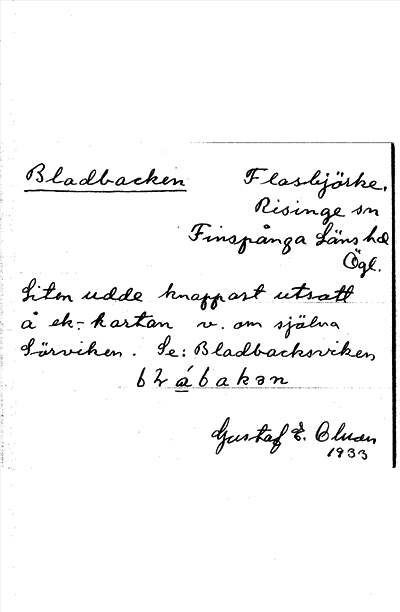 Bladbacken Flasbjörke,
Risinge sn
Finspånga Läns hd
Ögl.
Liten udde knappast utsatt
å ek.-kartan v. om själva
Lörviken. Se: Bladbacksviken
bábakən
Gustaf E.
1933